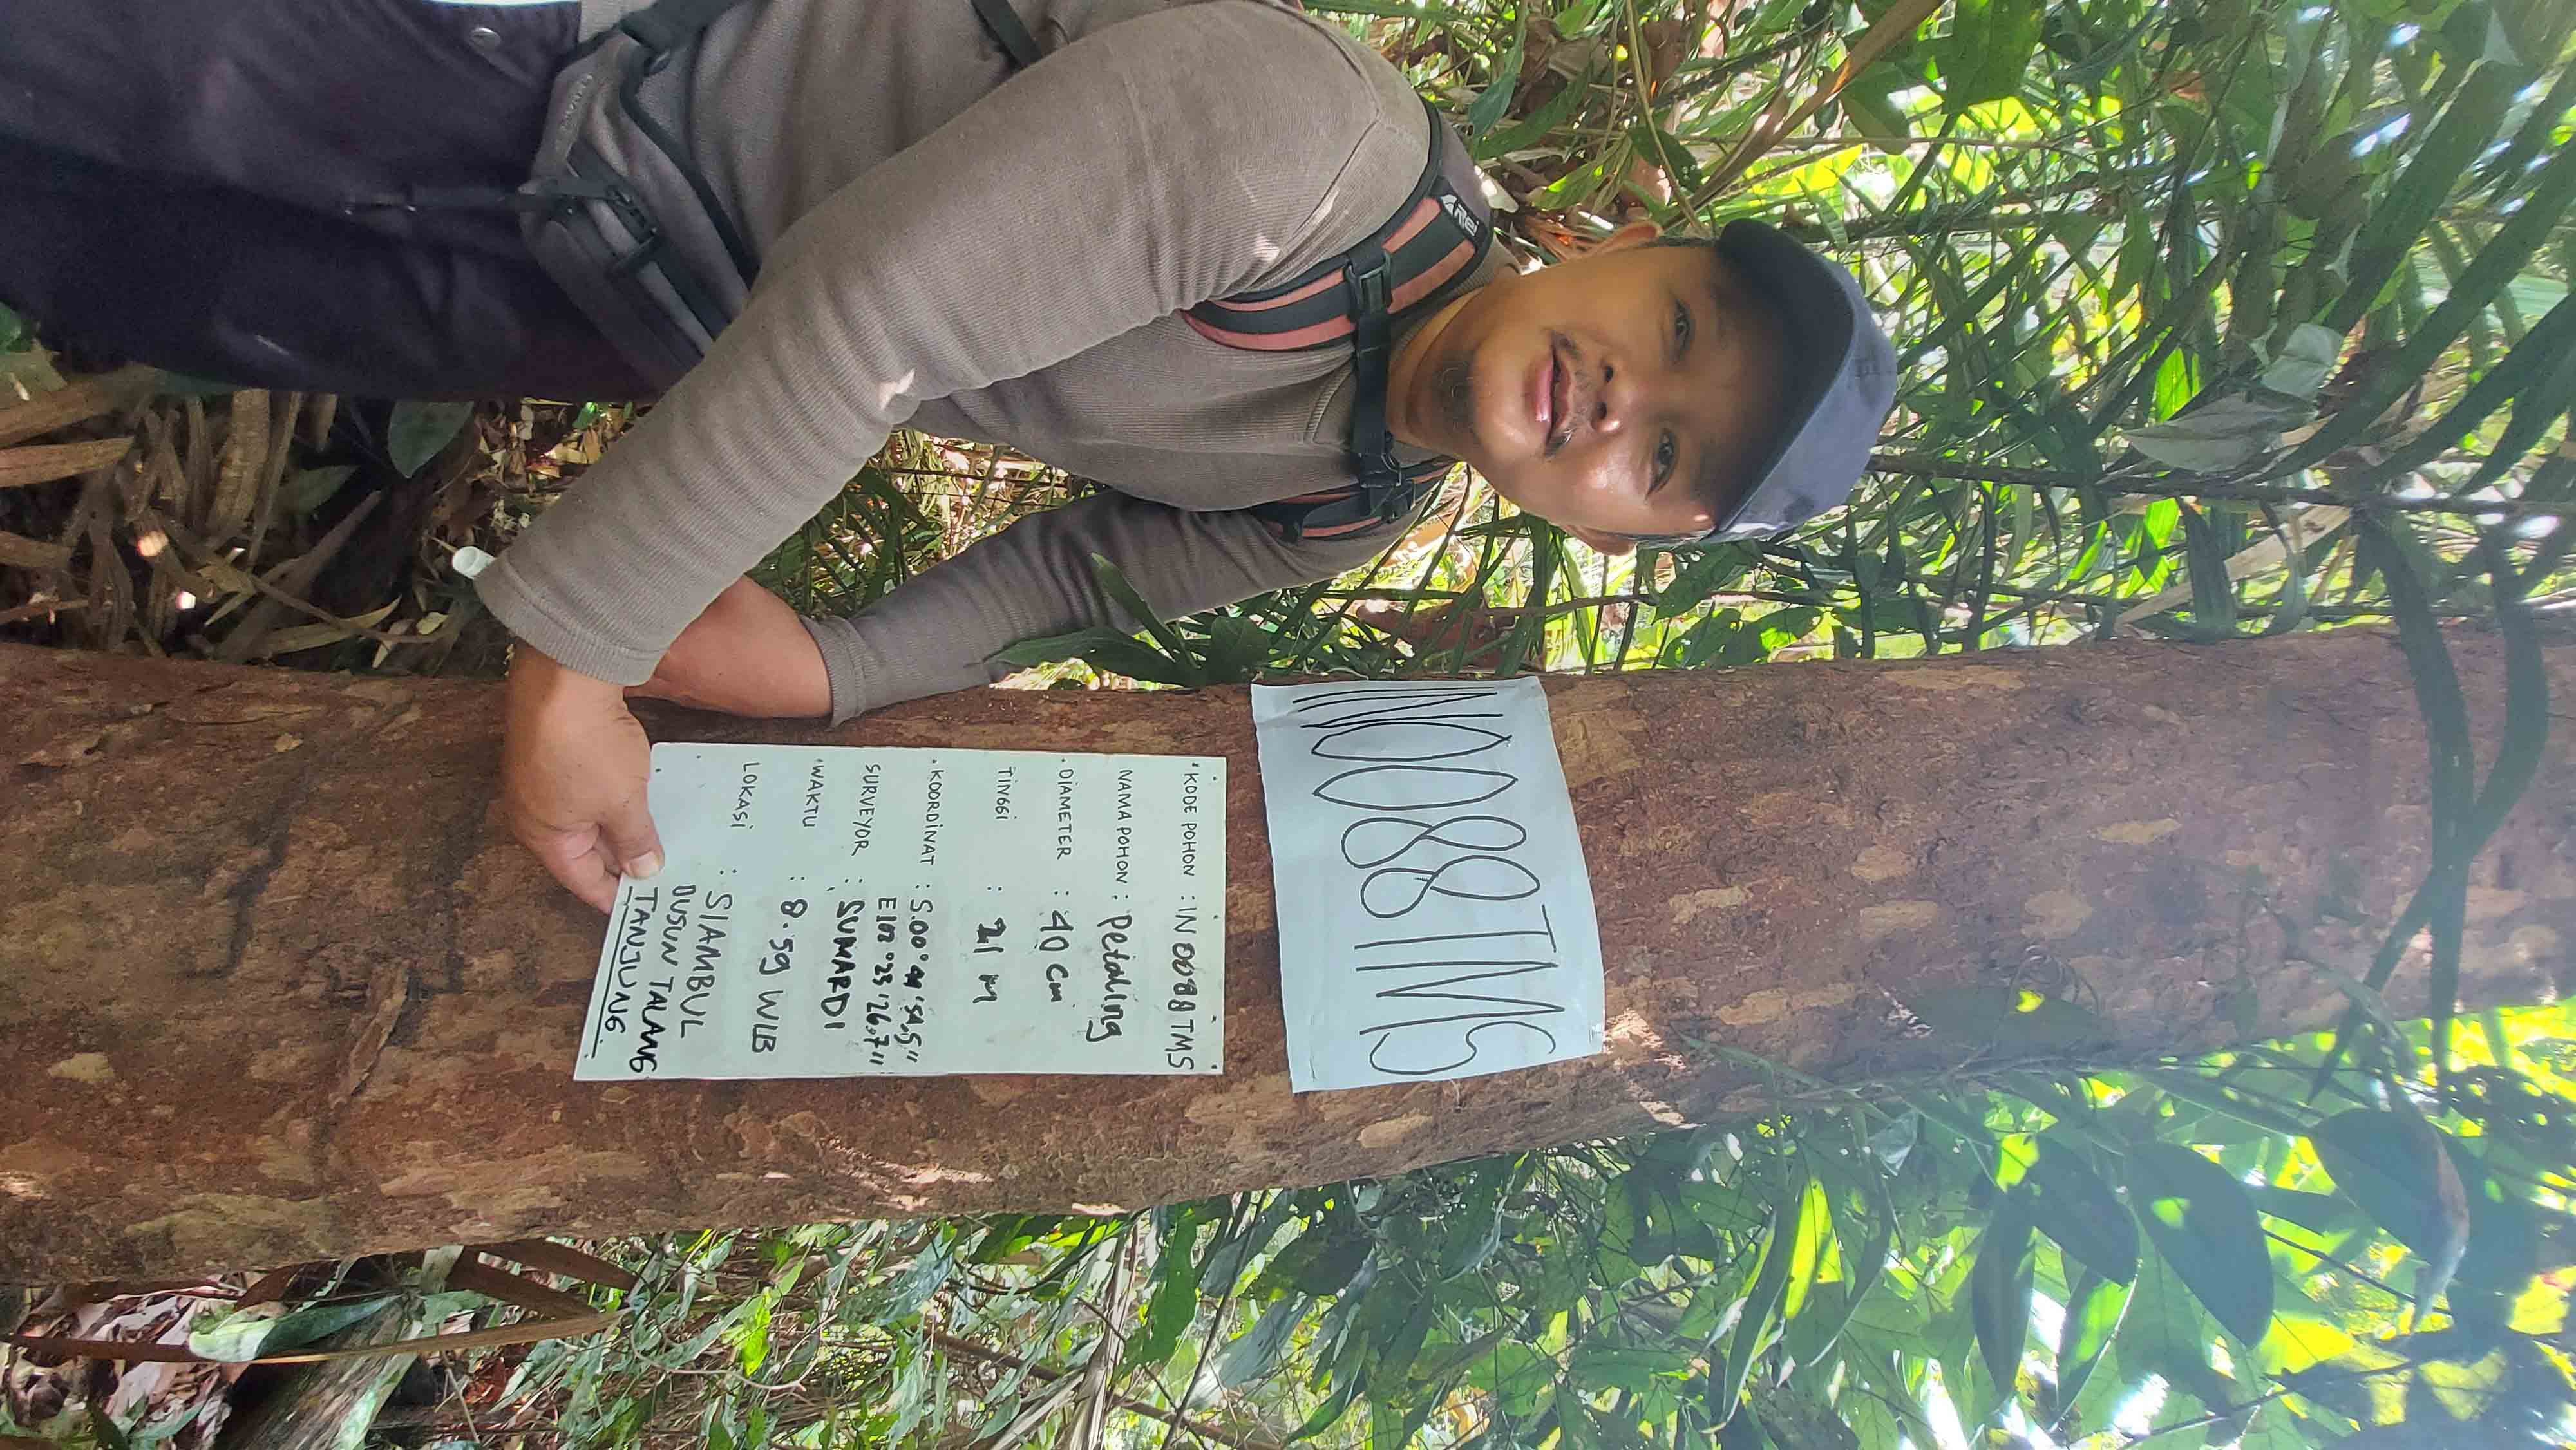 IN0088TMS
• KODE POHON : IN 0088 TMS
NAMA POHON : Petaling
• DIAMETER : 40 cm
TINGGI : 21 m
• KOORDINAT : S.00°41'54,5"
E102°23'26.7"
SURVEYOR : SUMARDI
• WAKTU : 8.59 WIB
LOKASI : SIAMBUL
DUSUN TALANG
TANJUNG
Arei